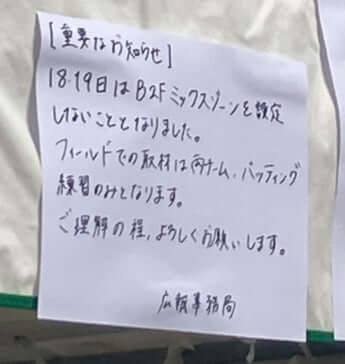 [重要なお知らせ]
18・19日はB2Fミックスゾーンを設定
しないこととなりました。
フィールドでの取材は両チーム、バッティング
練習のみとなります。
ご理解の程、よろしくお願いします。
広報事務局